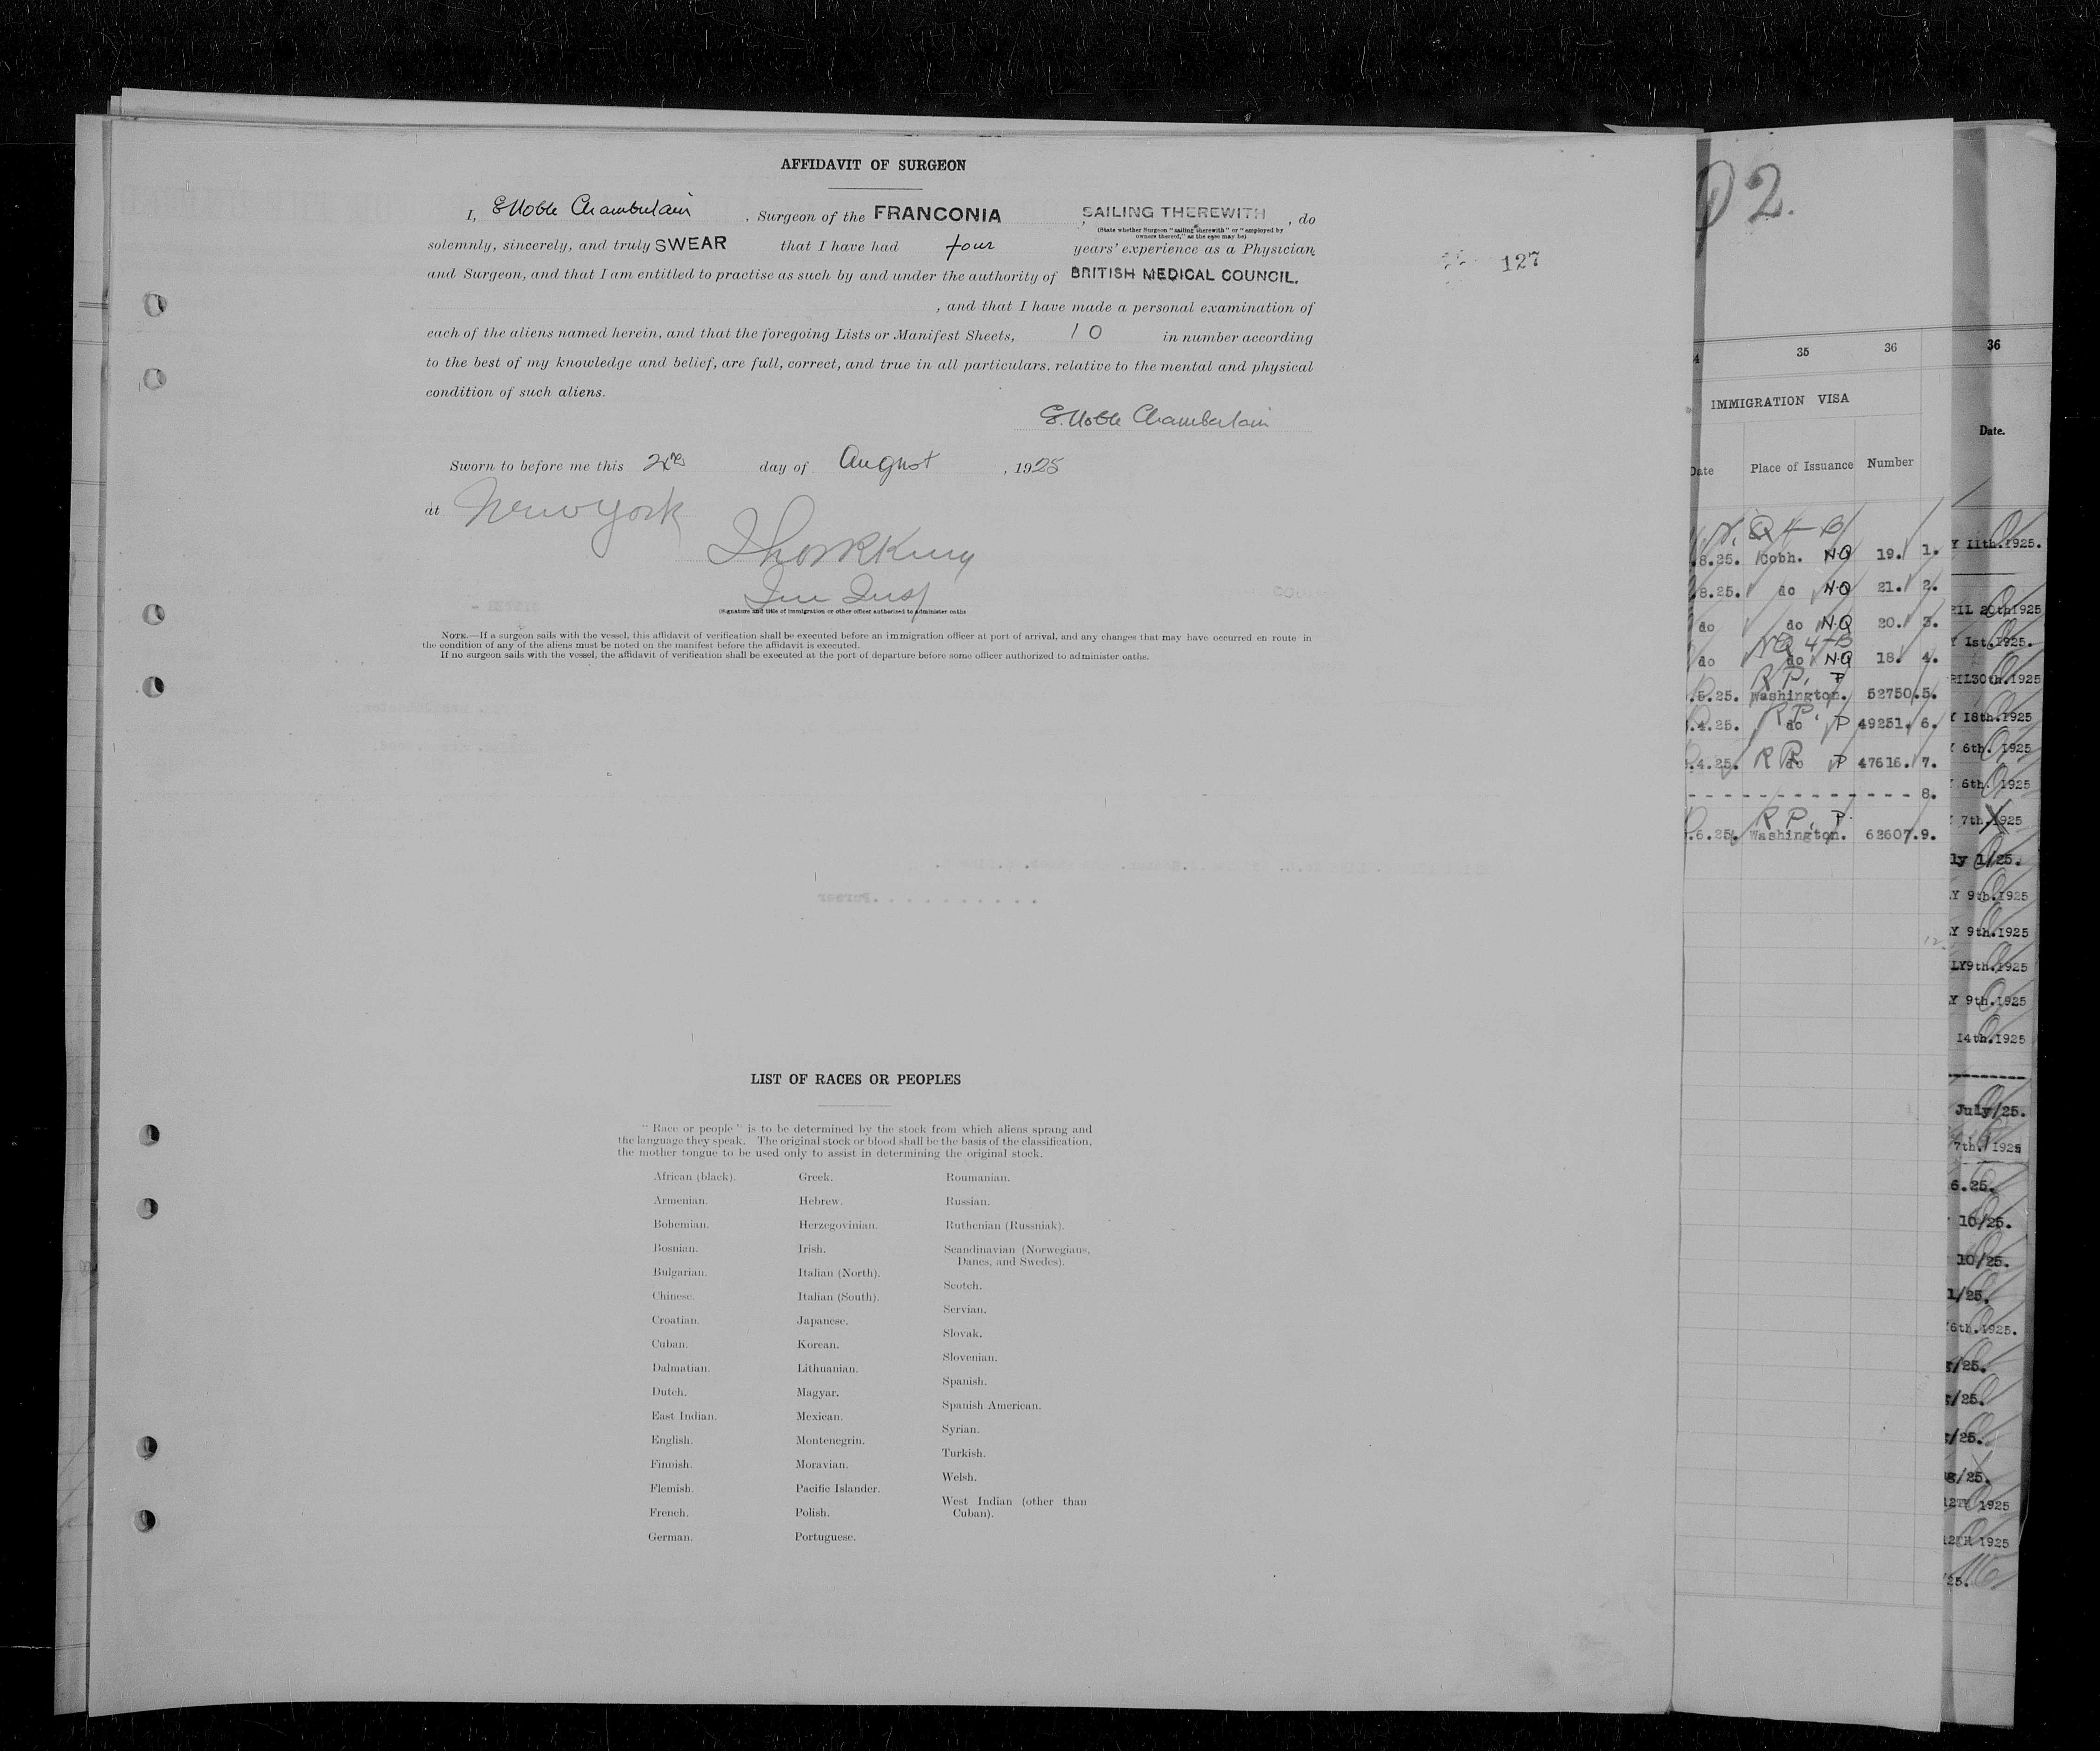 AFFIDAVIT OF SURGEON
I, E Noble Chamberlain , Surgeon of the FRANCONIA , SAILING THEREWITH , do
(State whether Surgeon "sailing therewith" or "employed by
owners thereof," as the case may be)
solemnly, sincerely, and truly SWEAR that I have had four years' experience as a Physician
and Surgeon, and that I am entitled to practise as such by and under the authority of BRITISH MEDICAL COUNCIL.
, and that I have made a personal examination of
each of the aliens named herein, and that the foregoing Lists or Manifest Sheets, 10 in number according
to the best of my knowledge and belief, are full, correct, and true in all particulars, relative to the mental and physical
condition of such aliens.
E. Noble Chamberlain
Sworn to before me this day of August , 1925
at New York
Imm Insp
(Signature and title of immigration or other officer authorized to administer oaths
NOTE.—If a surgeon sails with the vessel, this affidavit of verification shall be executed before an immigration officer at port of arrival, and any changes that may have occurred en route in
the condition of any of the aliens must be noted on the manifest before the affidavit is executed.
If no surgeon sails with the vessel, the affidavit of verification shall be executed at the port of departure before some officer authorized to administer oaths.
127
LIST OF RACES OR PEOPLES
"Race or people" is to be determined by the stock from which aliens sprang and
the language they speak. The original stock or blood shall be the basis of the classification,
the mother tongue to be used only to assist in determining the original stock.
African (black).
Armenian.
Bohemian.
Bosnian.
Bulgarian.
Chinese.
Croatian.
Cuban.
Dalmatian.
Dutch.
East Indian.
English.
Finnish.
Flemish.
French.
German.
Greek.
Hebrew.
Herzegovinian.
Irish.
Italian (North).
Italian (South).
Japanese.
Korean.
Lithuanian.
Magyar.
Mexican.
Montenegrin.
Moravian.
Pacific Islander.
Polish.
Portuguese.
Roumanian.
Russian.
Ruthenian (Russniak).
Scandinavian (Norwegians,
Danes, and Swedes).
Scotch.
Servian.
Slovak.
Slovenian.
Spanish.
Spanish American.
Syrian.
Turkish.
Welsh.
West Indian (other than
Cuban).
2.
35 36
IMMIGRATION VISA
Date Place of Issuance Number
.8.25. Cobh. NQ 19. 1.
.8.25. do NQ 21. 2.
do do NQ 20. 3.
NQ 4-B
do do NQ 18. 4.
R P. P
.5.25. Washington. 52750. 5.
R P.
.4.25. do P 49251. 6.
.4.25. R P. do P 47616. 7.
8.
R P. P.
.6.25. Washington. 62607. 9.
12.
36
Date.
Y 11th.1925.
RIL 20th1925
Y 1st.1925.
RIL30th.1925
Y 18th.1925
Y 6th. 1925
Y 6th. 1925
7th.1925
ly 1/25.
Y 9th.1925
Y 9th.1925
LY9th.1925
Y 9th.1925
14th.1925
July/25.
7th. 1925
6.25.
10/25.
10/25.
1/25.
6th.1925.
g/25.
g/25.
g/25.
ug/25.
12TH 1925
12TH 1925
/25.